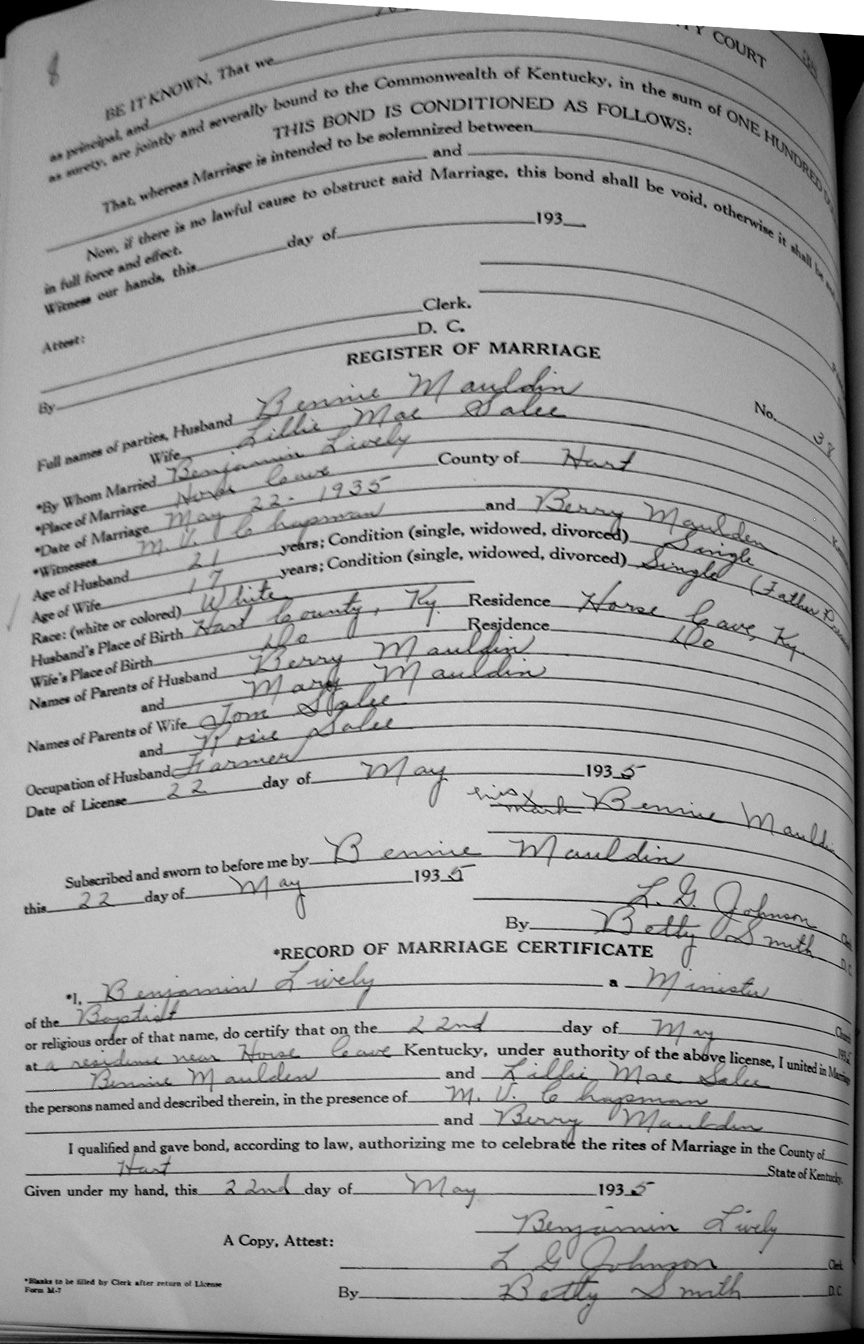 8
TY COURT
BE IT KNOWN, That we
as principal, and
as surety, are jointly and severally bound to the Commonwealth of Kentucky, in the sum of ONE HUNDRED
THIS BOND IS CONDITIONED AS FOLLOWS:
That, whereas Marriage is intended to be solemnized between
and
Now, if there is no lawful cause to obstruct said Marriage, this bond shall be void, otherwise it shall be
in full force and effect.
Witness our hands, this day of 193
Attest: Clerk.
By D. C.
REGISTER OF MARRIAGE
No. 38
Full names of parties, Husband Bennie Mauldin
Wife Lillie Mae Salee
*By Whom Married Benjamin Lively
*Place of Marriage Horse Cave County of Hart
*Date of Marriage May 22 - 1935
*Witnesses M. V. Chapman and Berry Maulden
Age of Husband 21 years; Condition (single, widowed, divorced) Single
Age of Wife 17 years; Condition (single, widowed, divorced) Single (Father
Race: (white or colored) White
Husband's Place of Birth Hart County, Ky. Residence Horse Cave, Ky.
Wife's Place of Birth Do Residence Do
Names of Parents of Husband Berry Mauldin
and Mary Mauldin
Names of Parents of Wife Tom Salee
and Rosie Salee
Occupation of Husband Farmer
Date of License 22 day of May 1935
his mark Bennie Mauldin
Subscribed and sworn to before me by Bennie Mauldin
this 22 day of May 1935
L. G. Johnson
By Betty Smith D.C.
*RECORD OF MARRIAGE CERTIFICATE
*I, Benjamin Lively a Minister
of the Baptist Church
or religious order of that name, do certify that on the 22nd day of May 1935
at a residence near Horse Cave Kentucky, under authority of the above license, I united in Marriage
Bennie Maulden and Lillie Mae Salee
the persons named and described therein, in the presence of M. V. Chapman
and Berry Mauldin
I qualified and gave bond, according to law, authorizing me to celebrate the rites of Marriage in the County of
Hart State of Kentucky.
Given under my hand, this 22nd day of May 1935
Benjamin Lively
A Copy, Attest: L G Johnson Clerk
By Betty Smith D.C.
*Blanks to be filled by Clerk after return of License
Form M-7